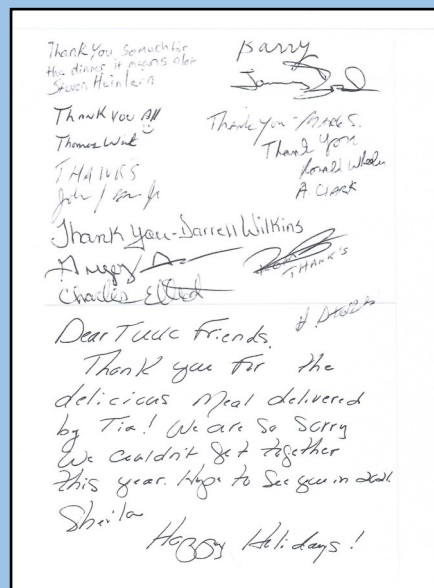 Thank you so much for
the dinner it means alot
Steven Heinlein
Barry
Thank you All
Thomas
Thank you - Mark S.
Thank you
Ronald Wheeler
A. CLARK
THANKS
John
Thank you - Darrell Wilkins
THANK'S
Charles
Dear TUUC Friends,
Thank you for the
delicious Meal delivered
by Tia! We are So Sorry
We couldn't get together
this year. Hope to See you in 2021.
Sheila
Happy Holidays!